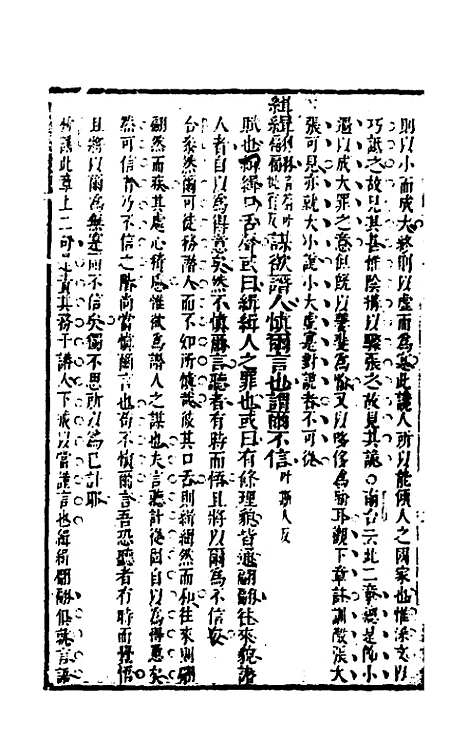 則以小而成大終則以虛而為實此讒人所以能傾人之國家也惟深文以
巧詆之故見其甚惟陰構以驟張之故見其詭南台云此二章總是飾小
過以成大罪之意但既以萋斐為喻又以哆侈為喻耳觀下章註訓微張大
張可見亦就大小說小大虛實對說者不可從
緝緝翩翩謀欲譖人慎爾言也謂爾不信
賦也緝緝口舌聲或曰緝緝人之罪也或曰有條理貌皆通翩翩往來貌譖
人者自以為得意矣然不慎爾言聽者有時而悟且將以爾為不信矣
台卷然爾可徒務譖人而不知所慎哉彼其口舌則緝緝然而和往來則翩
翩然而疾其處心積慮惟欲為譖人之謀也夫言聽計從固自以為得意矣
然可信者乃不信之階尚當慎爾言也苟不慎爾言吾恐聽者有時而獲悟
且將以爾為無實而不信矣獨不思所以為已計耶
此章上二句是責其務于譖人下戒以當謹言也緝緝翩翩俱就言語